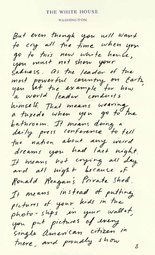 THE WHITE HOUSE
WASHINGTON
But even though you will want
to cry all the time when you
go to this new white house,
you must not show your
sadness. As the leader of the
most powerful country on Earth,
you set the example for how
a world leader conducts
himself. That means wearing
a tuxedo when you go to the
bathroom. It means doing a
daily press conference to tell
the nation about any weird
dreams you had last night.
It means not crying all day
and all night because of
Ronald Reagan's Private Shed.
It means instead of putting
pictures of your kids in the
photo-slips in your wallet,
you put pictures of every
single American citizen in
there, and proudly show